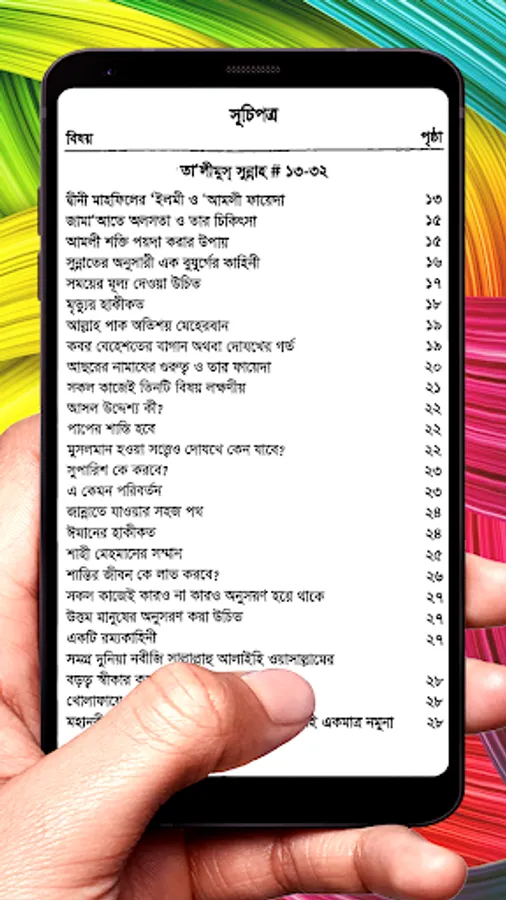 সূচিপত্র
বিষয় পৃষ্ঠা
তা'লীমুস্ সুন্নাহ # ১৩-৩২
দ্বীনী মাহফিলের 'ইলমী ও 'আমলী ফায়েদা ১৩
জামা'আতে অলসতা ও তার চিকিৎসা ১৫
আমলী শক্তি পয়দা করার উপায় ১৫
সুন্নাতের অনুসারী এক বুযুর্গের কাহিনী ১৬
সময়ের মূল্য দেওয়া উচিত ১৭
মৃত্যুর হাকীকত ১৮
আল্লাহ পাক অতিশয় মেহেরবান ১৯
কবর বেহেশতের বাগান অথবা দোযখের গর্ত ১৯
আছরের নামাযের গুরুত্ব ও তার ফায়েদা ২০
সকল কাজেই তিনটি বিষয় লক্ষণীয় ২১
আসল উদ্দেশ্য কী? ২২
পাপের শাস্তি হবে ২২
মুসলমান হওয়া সত্ত্বেও দোযখে কেন যাবে? ২২
সুপারিশ কে করবে? ২৩
এ কেমন পরিবর্তন ২৩
জান্নাতে যাওয়ার সহজ পথ ২৪
ঈমানের হাকীকত ২৪
শাহী মেহমানের সম্মান ২৫
শান্তির জীবন কে লাভ করবে? ২৬
সকল কাজেই কারও না কারও অনুসরণ হয়ে থাকে ২৭
উত্তম মানুষের অনুসরণ করা উচিত ২৭
একটি রম্যকাহিনী ২৭
সমগ্র দুনিয়া নবীজি সাল্লাল্লাহু আলাইহি ওয়াসাল্লামের
বড়ত্ব স্বীকার ২৮
খোলাফায়ে ২৮
একমাত্র নমুনা ২৮